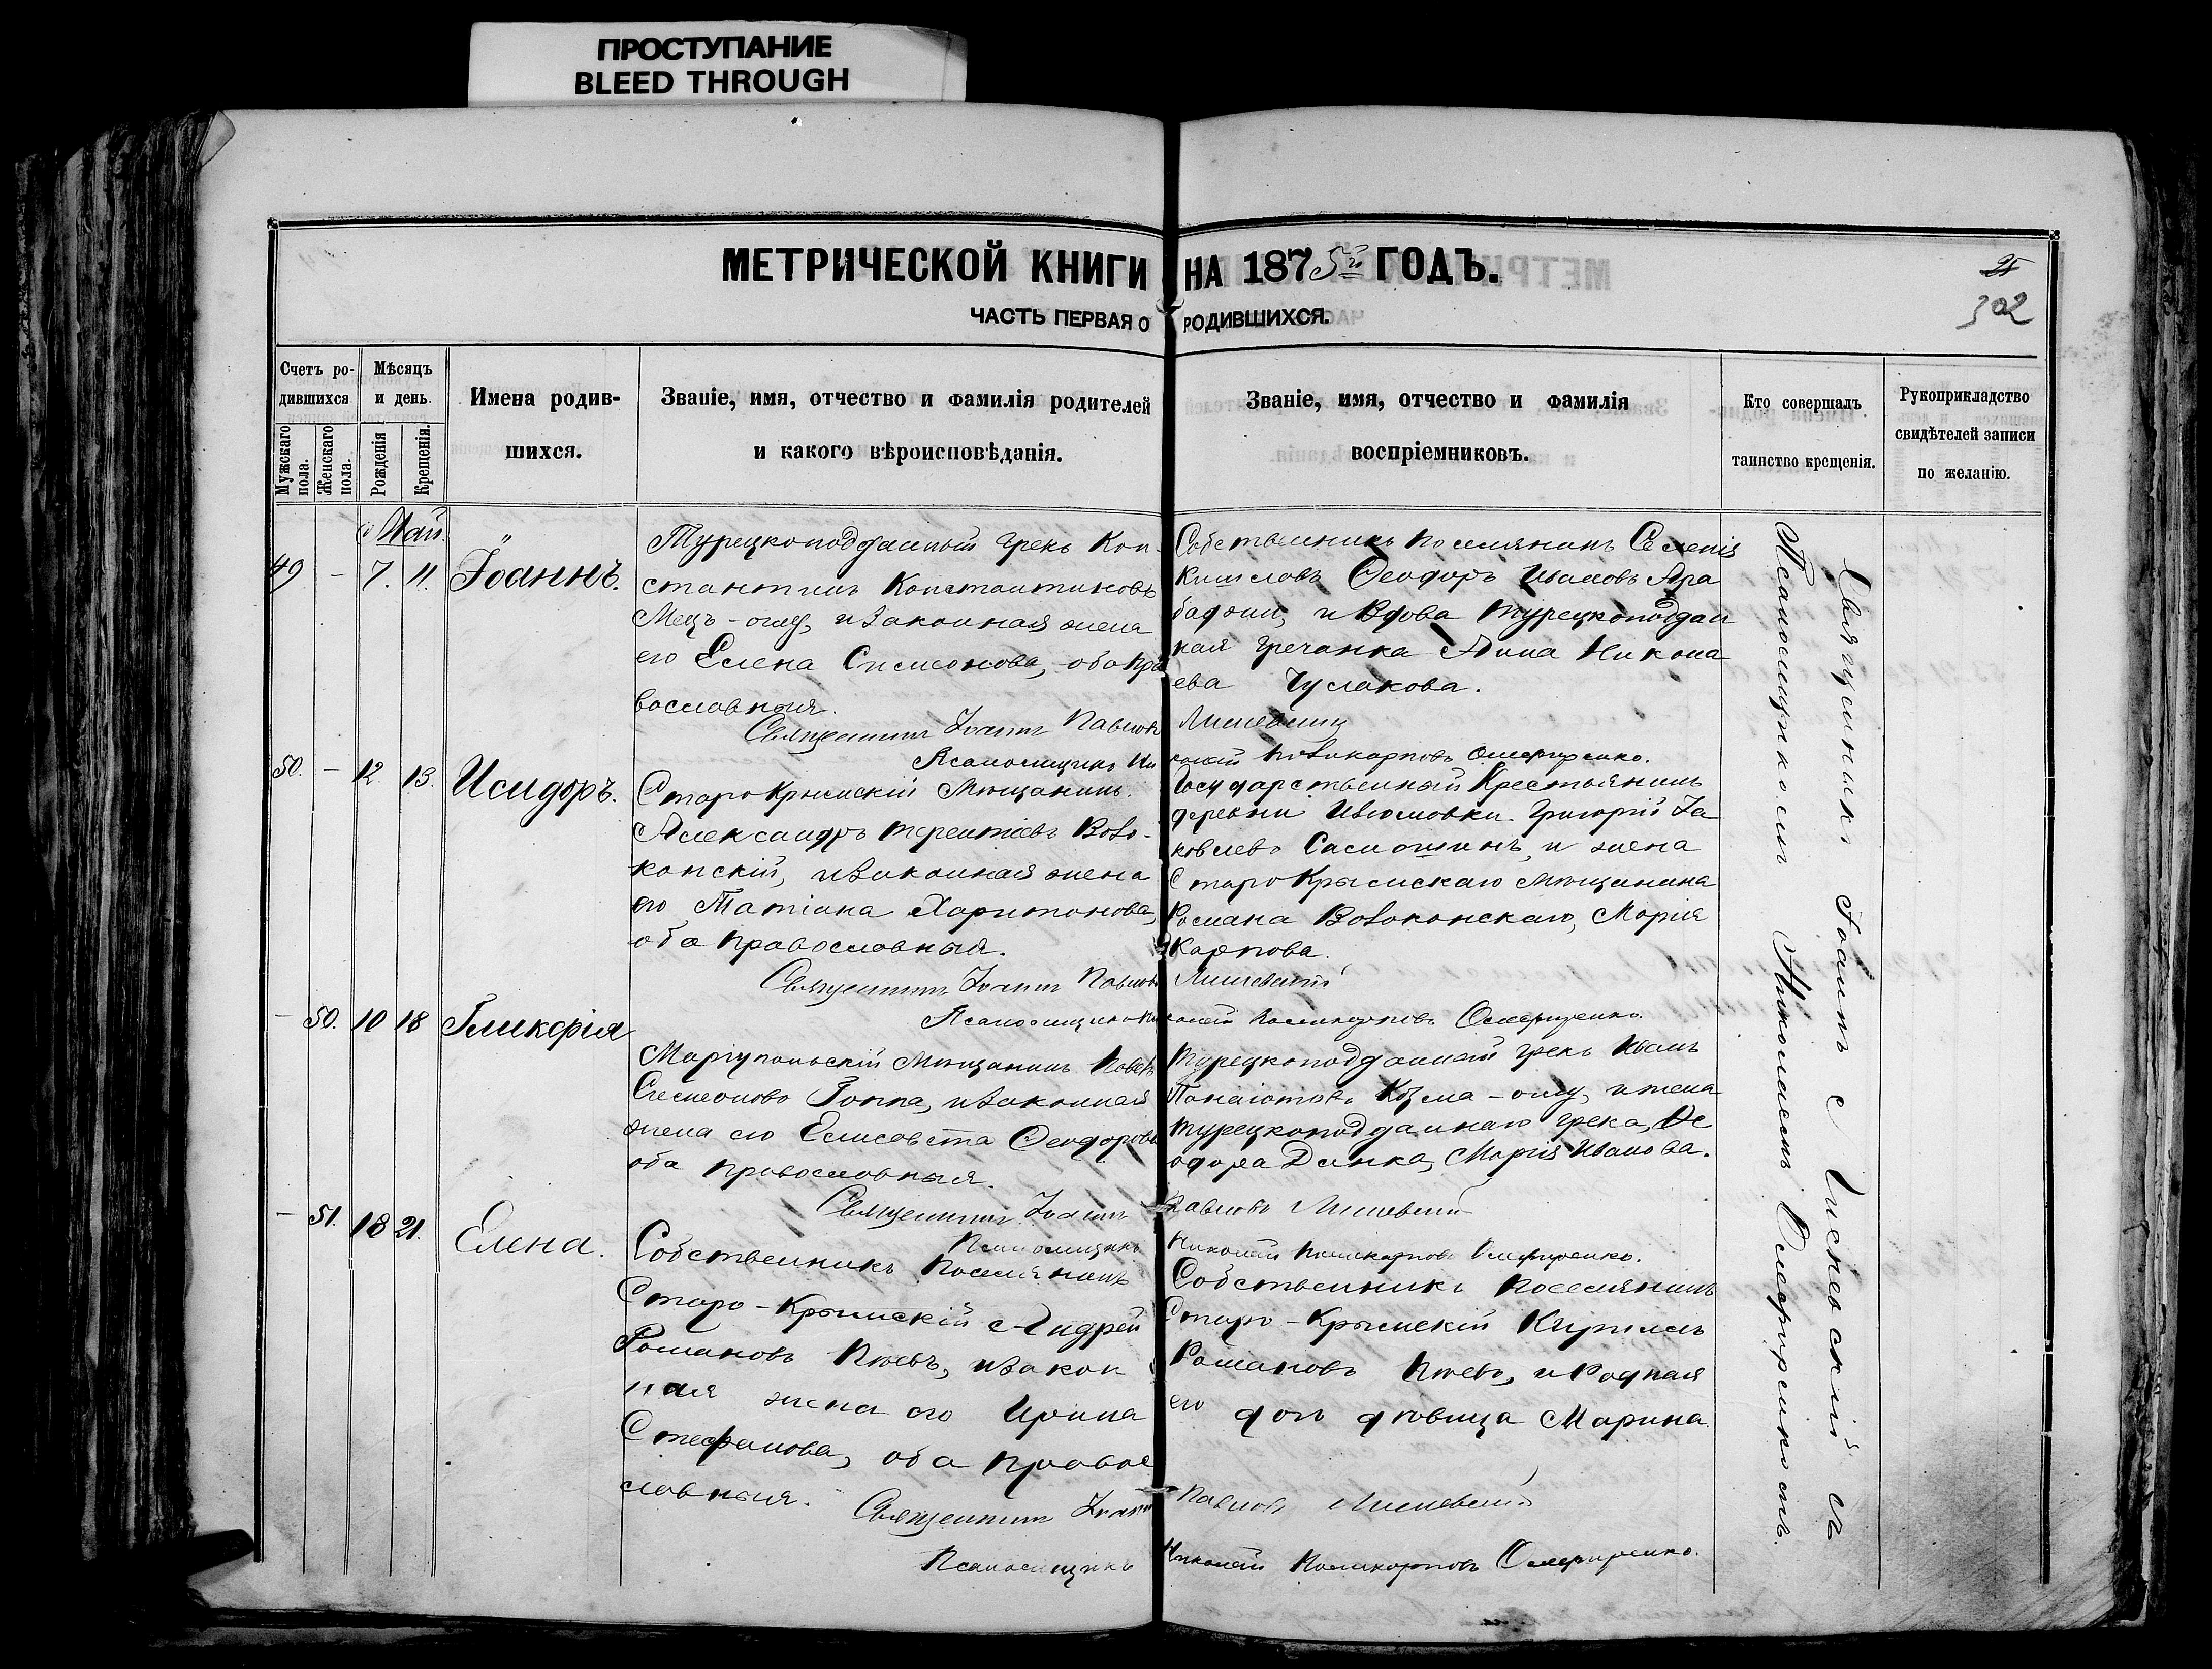 ПРОСТУПАНИЕ
BLEED THROUGH
МЕТРИЧЕСКОЙ КНИГИ НА 1875й ГОДЪ.
ЧАСТЬ ПЕРВАЯ О РОДИВШИХСЯ.
302
Счетъ ро-
дившихся
Мужскаго пола.
Женскаго пола.
Мѣсяцъ
и день.
Рожденія
Крещенія.
Имена родив-
шихся.
Званіе, имя, отчество и фамилія родителей
и какого вѣроисповѣданія.
Званіе, имя, отчество и фамилія
воспріемниковъ.
Кто совершалъ
таинство крещенія.
Рукоприкладство
свидѣтелей записи
по желанію.
Май.
49 – 7. 11. Іоаннъ.
Турецкоподданный грекъ Кон-
стантинъ Константиновъ
оглу, и законная жена
его Елена Симеонова, оба пра
вославныя.
Собственникъ поселянинъ Селенія
Ѳеодоръ Ивановъ Ара
баджи, и вдова турецкоподдан
ная гречанка Анна Никола
ева Чулакова.
Священникъ Іоаннъ Павловъ
Псаломщикъ Ни
колай Поликарповъ
50. – 12. 13. Исидоръ.
СтароКрымскій Мѣщанинъ
Александръ Терентіевъ Вово-
конскій, и законная жена
его Татіана Харитонова,
оба православныя.
Государственный Крестьянинъ
деревни Григорій Іа
ковлевъ и жена
СтароКрымскаго мѣщанина
Романа Вовоконскаго, Марія
Карпова.
Священникъ Іоаннъ Павловъ
Псаломщикъ Ни
колай Поликарповъ
– 50. 10 18 Гликерія
Маріупольскій Мѣщанинъ Павелъ
Симеоновъ Попа, и законная
жена его Елисавета Ѳеодорова
оба православныя.
Турецкоподданный грекъ Иванъ
Панаіотовъ Козма-оглу, и жена
турецкоподданнаго грека, Ѳе
одора Динка, Марія Иванова.
Священникъ Іоаннъ Павловъ
Псаломщикъ Николай Поликарповъ
– 51. 18 21. Елена.
Собственникъ Поселянинъ
Старо-Крымскій Андрей
Романовъ и закон
ная жена его Ирина
Стефанова, оба правос
лавныя.
Собственникъ Поселянинъ
Старо-Крымскій Кириллъ
Романовъ и Родная
его дочь дѣвица Марина
Священникъ Іоаннъ Павловъ
Псаломщикъ Николай Поликарповъ
Священникъ Іоаннъ съ
Псаломщикомъ Николаемъ